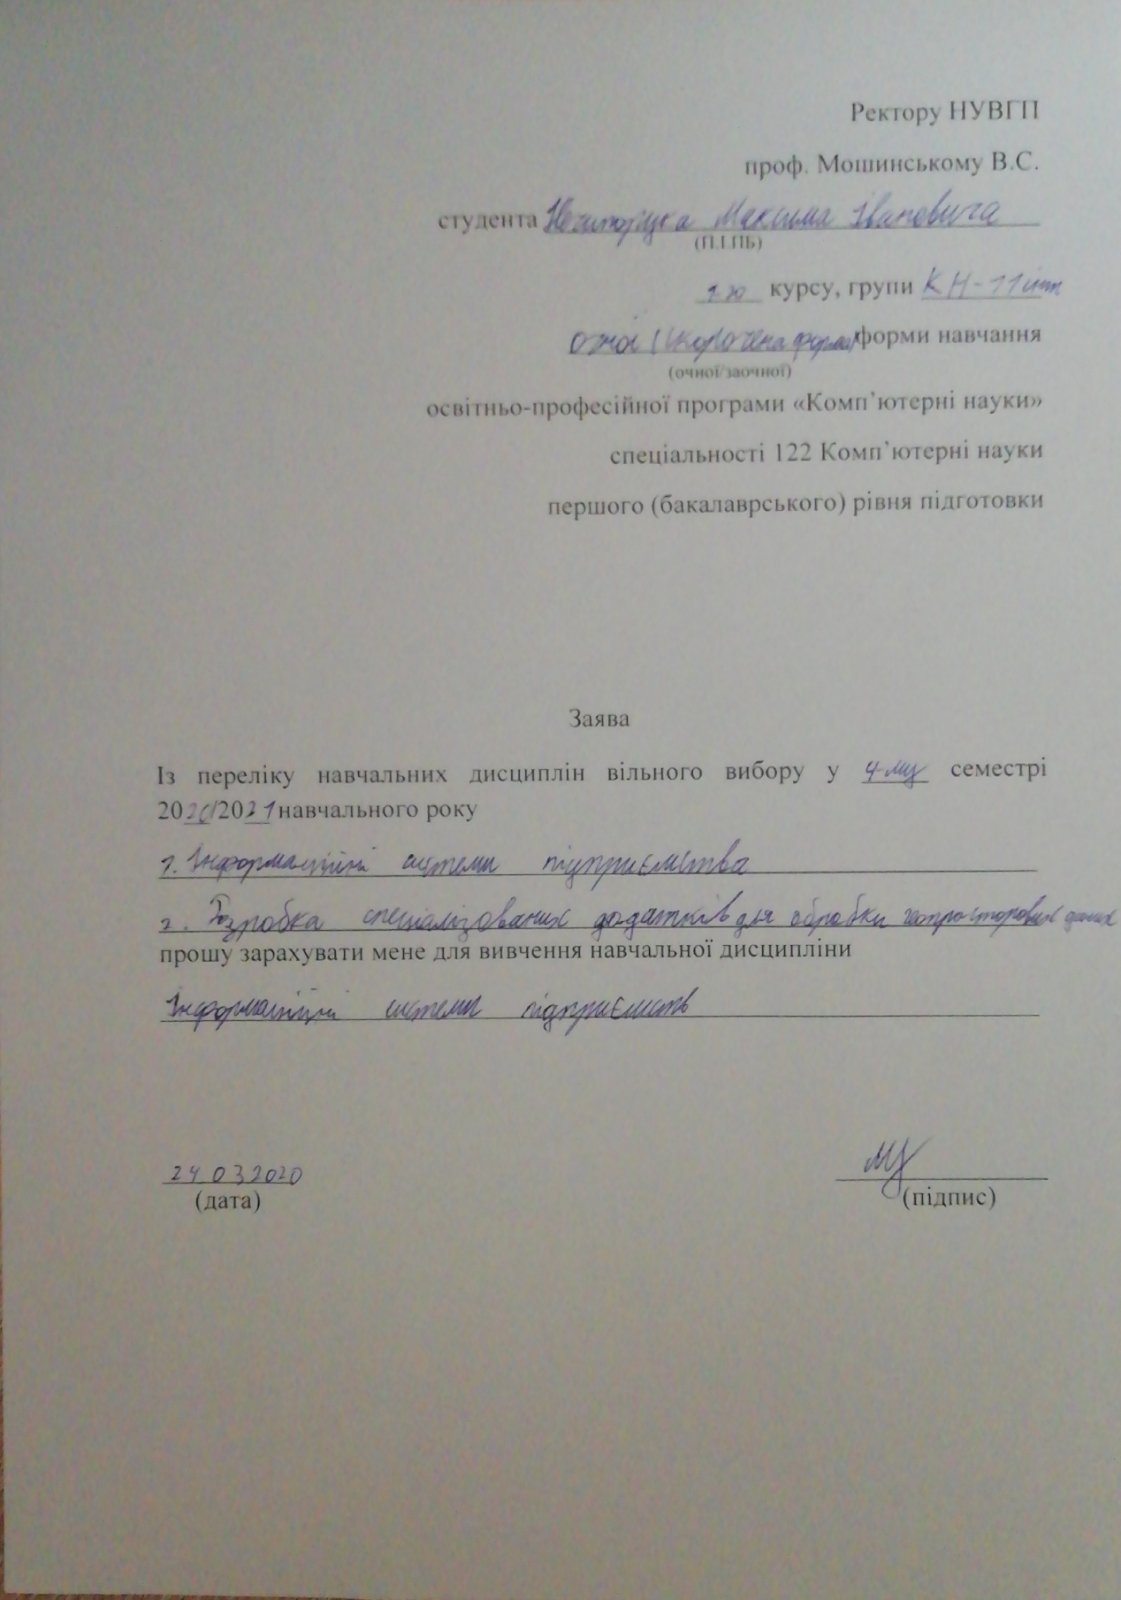 Ректору НУВГП
проф. Мошинському В.С.
студента Нечипорука Максима Івановича
(П.І.ПЬ)
1го курсу, групи КН-11інт
очної (скорочена форма) форми навчання
(очної/заочної)
освітньо-професійної програми «Комп’ютерні науки»
спеціальності 122 Комп’ютерні науки
першого (бакалаврського) рівня підготовки
Заява
Із переліку навчальних дисциплін вільного вибору у 4-му семестрі
2020/2021 навчального року
1. Інформаційні системи підприємства
2. Розробка спеціалізованих додатків для обробки геопросторових даних
прошу зарахувати мене для вивчення навчальної дисципліни
Інформаційні системи підприємств
24.03.2020
(дата)
(підпис)